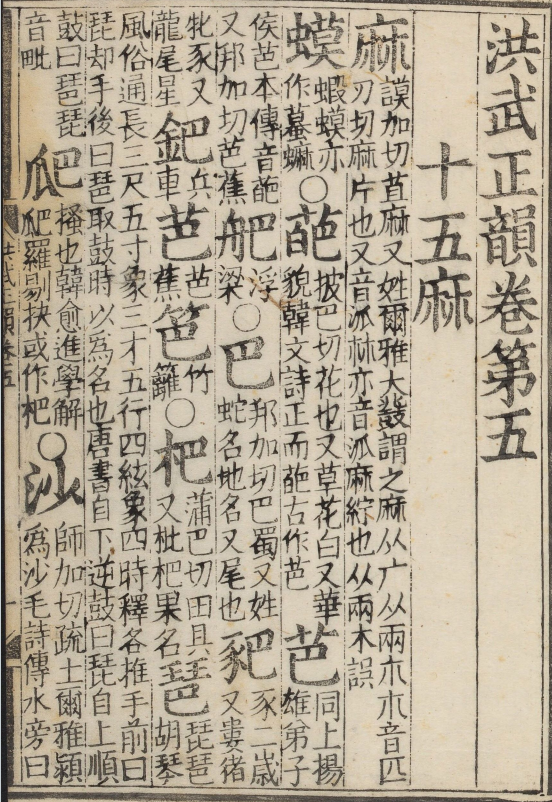 洪武正韻卷第五
十五麻
麻謨加切苴麻又姓爾雅大鼗謂之麻从广从兩朩朩音匹
刃切麻片也又音𠂢𣏟亦音𠂢麻紵也从兩木誤
蟆蝦蟆亦作蟇○葩披巴切花也又草花白又華貌韓文詩正而葩古作芭芭同上揚雄弟子
侯芭本傳音葩又邦加切芭蕉舥浮梁○巴邦加切巴蜀又姓蛇名地名又尾也豝豕二歲又婁猪
牝豕又龍尾星鈀兵車芭芭蕉笆竹籬○杷蒲巴切田具又枇杷果名琶琵琶胡琴
風俗通長三尺五寸象三才五行四絃象四時釋各推手前曰
琵却手後曰琶取鼓時以爲名也唐書自下逆鼓曰琵自上順
鼓曰琶琵音毗爬搔也韓愈進學解爬羅剔抉或作杷○沙師加切疏土爾雅潁爲沙毛詩傳水旁曰
洪武正韻卷五